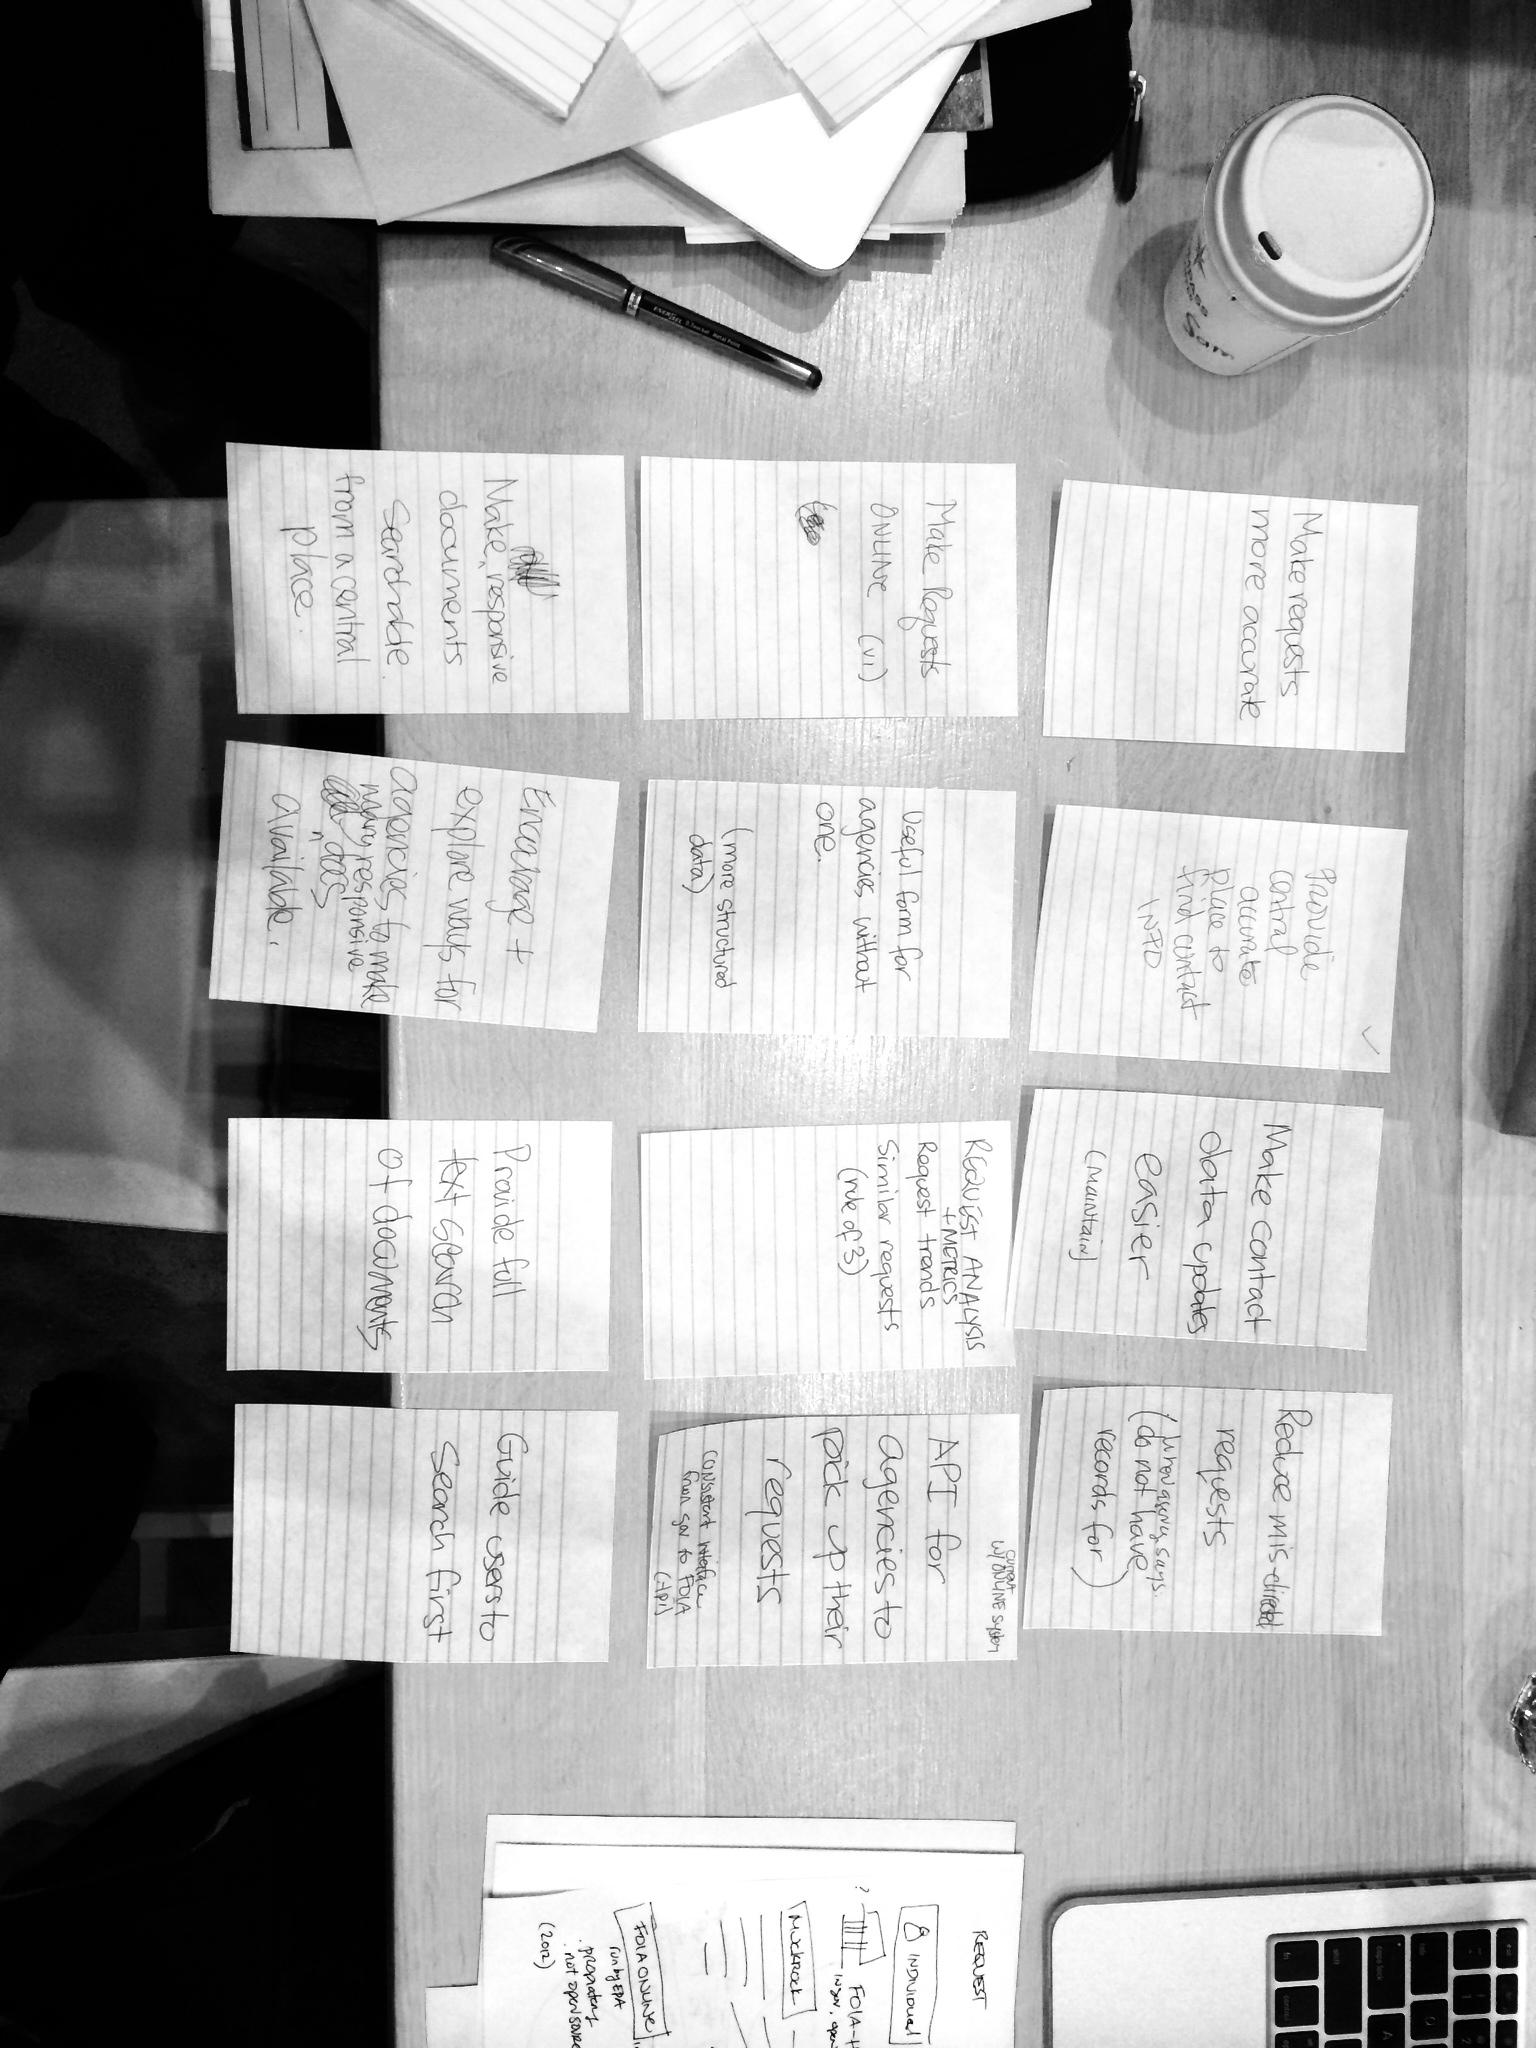 Make requests
more accurate
Provide
central
accurate
place to
find contact
INFO
Make contact
data updates
easier
(maintain)
Reduce mis-directed
requests
(when agency says
do not have
records for)
Make Requests
ONLINE (VI)
useful form for
agencies without
one.
(more structured
data)
REQUEST ANALYSIS
+ METRICS
Request trends
Similar requests
(rule of 3)
current
w/ONLINE system
API for
agencies to
pick up their
requests
consistent interface
from gov to FOIA
(API)
Make responsive
documents
searchable
from a central
place.
Encourage +
explore ways for
agencies to make
many responsive
docs
available.
Provide full
text search
of documents
Guide users to
search first
Sam
REQUEST
INDIVIDUAL
?
FOIA-H
MUCKROCK
FOIA ONLINE
run by EPA
. proprietary
. not open source
(2012)